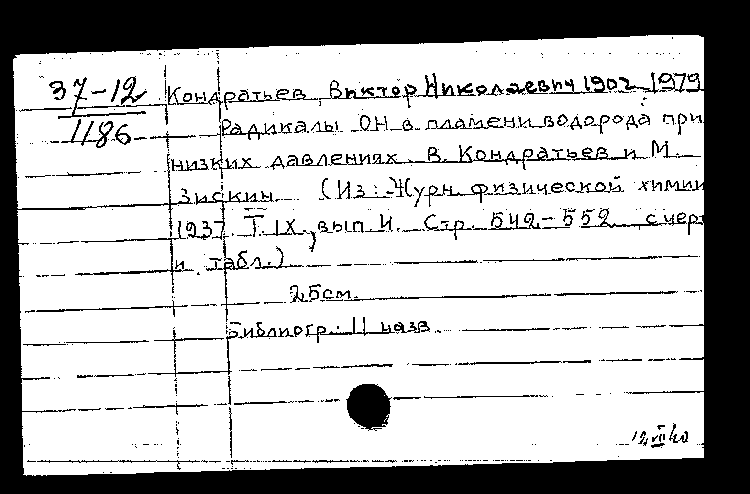 37-12
1186
Кондратьев, Виктор Николаевич 1902-1979
Радикалы OH в пламени водорода при
низких давлениях. В. Кондратьев и М.
Зискин (Из: Журн. физической химии
1937. Т. IX, вып. 4. Стр. 542-552 с черт
и табл.)
25см.
Библиогр.: 11 назв.